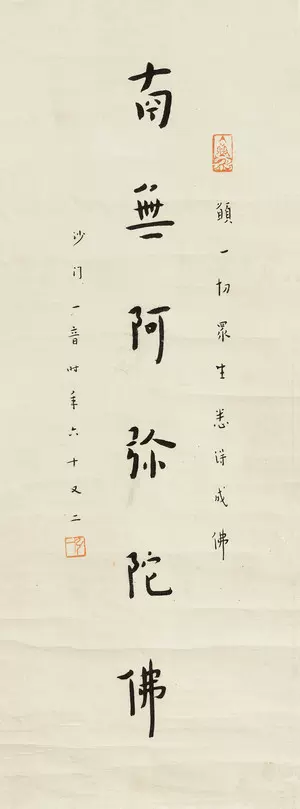 願一切眾生悉得成佛
南無阿弥陀佛
沙门一音时年六十又二